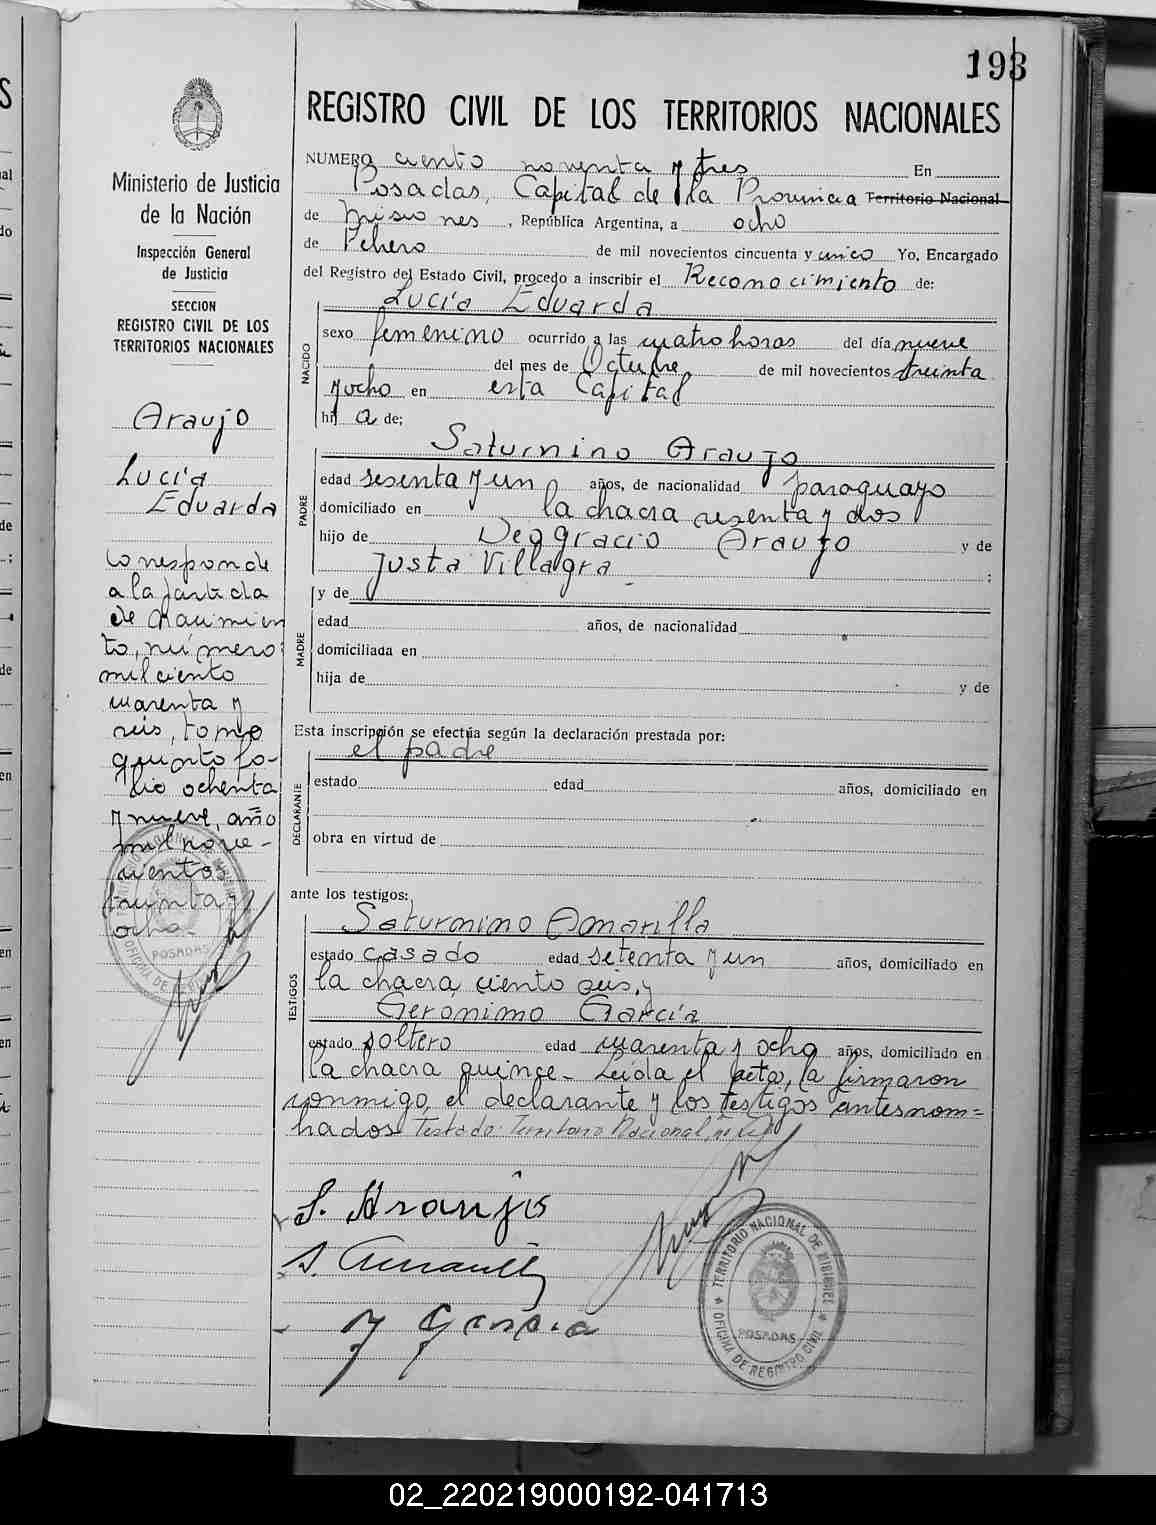 193
REGISTRO CIVIL DE LOS TERRITORIOS NACIONALES
Ministerio de Justicia
de la Nación
Inspección General
de Justicia
SECCION
REGISTRO CIVIL DE LOS
TERRITORIOS NACIONALES
Araujo
Lucía
Eduarda
Corresponde
a la partida
de Nacimien
to, número
mil ciento
cuarenta y
seis, tomo
quinto fo-
lio ochenta
y nueve, año
mil nove-
cientos
treinta y
ocho.-
NUMERO ciento noventa y tres En
Posadas, Capital de la Provincia Territorio Nacional
de Misiones, República Argentina, a ocho
de Febrero de mil novecientos cincuenta y cinco Yo, Encargado
del Registro del Estado Civil, procedo a inscribir el Reconocimiento de:
Lucía Eduarda
NACIDO
sexo femenino ocurrido a las cuatro horas del día nueve
del mes de Octubre de mil novecientos treinta
y ocho en esta Capital
hij a de;
Saturnino Araujo
PADRE
edad sesenta y un años, de nacionalidad paraguayo
domiciliado en la chacra sesenta y dos
hijo de Deogracio Araujo y de
Justa Villagra ;
y de
MADRE
edad años, de nacionalidad
domiciliada en
hija de y de
Esta inscripción se efectúa según la declaración prestada por:
el padre
DECLARANTE
estado edad años, domiciliado en
obra en virtud de
ante los testigos:
Saturnino Amarilla
TESTIGOS
estado casado edad setenta y un años, domiciliado en
la chacra ciento seis, y
Geronimo García
estado soltero edad cuarenta y ocho años, domiciliado en
la chacra quince.- Leída el acta, la firmaron
conmigo, el declarante y los testigos antes nom=
brados Testado: Territorio Nacional,
S. Araujo
S. Amarilla
J Garcia
TERRITORIO NACIONAL DE MISIONES
POSADAS
OFICINA DE REGISTRO CIVIL
POSADAS
02_220219000192-041713